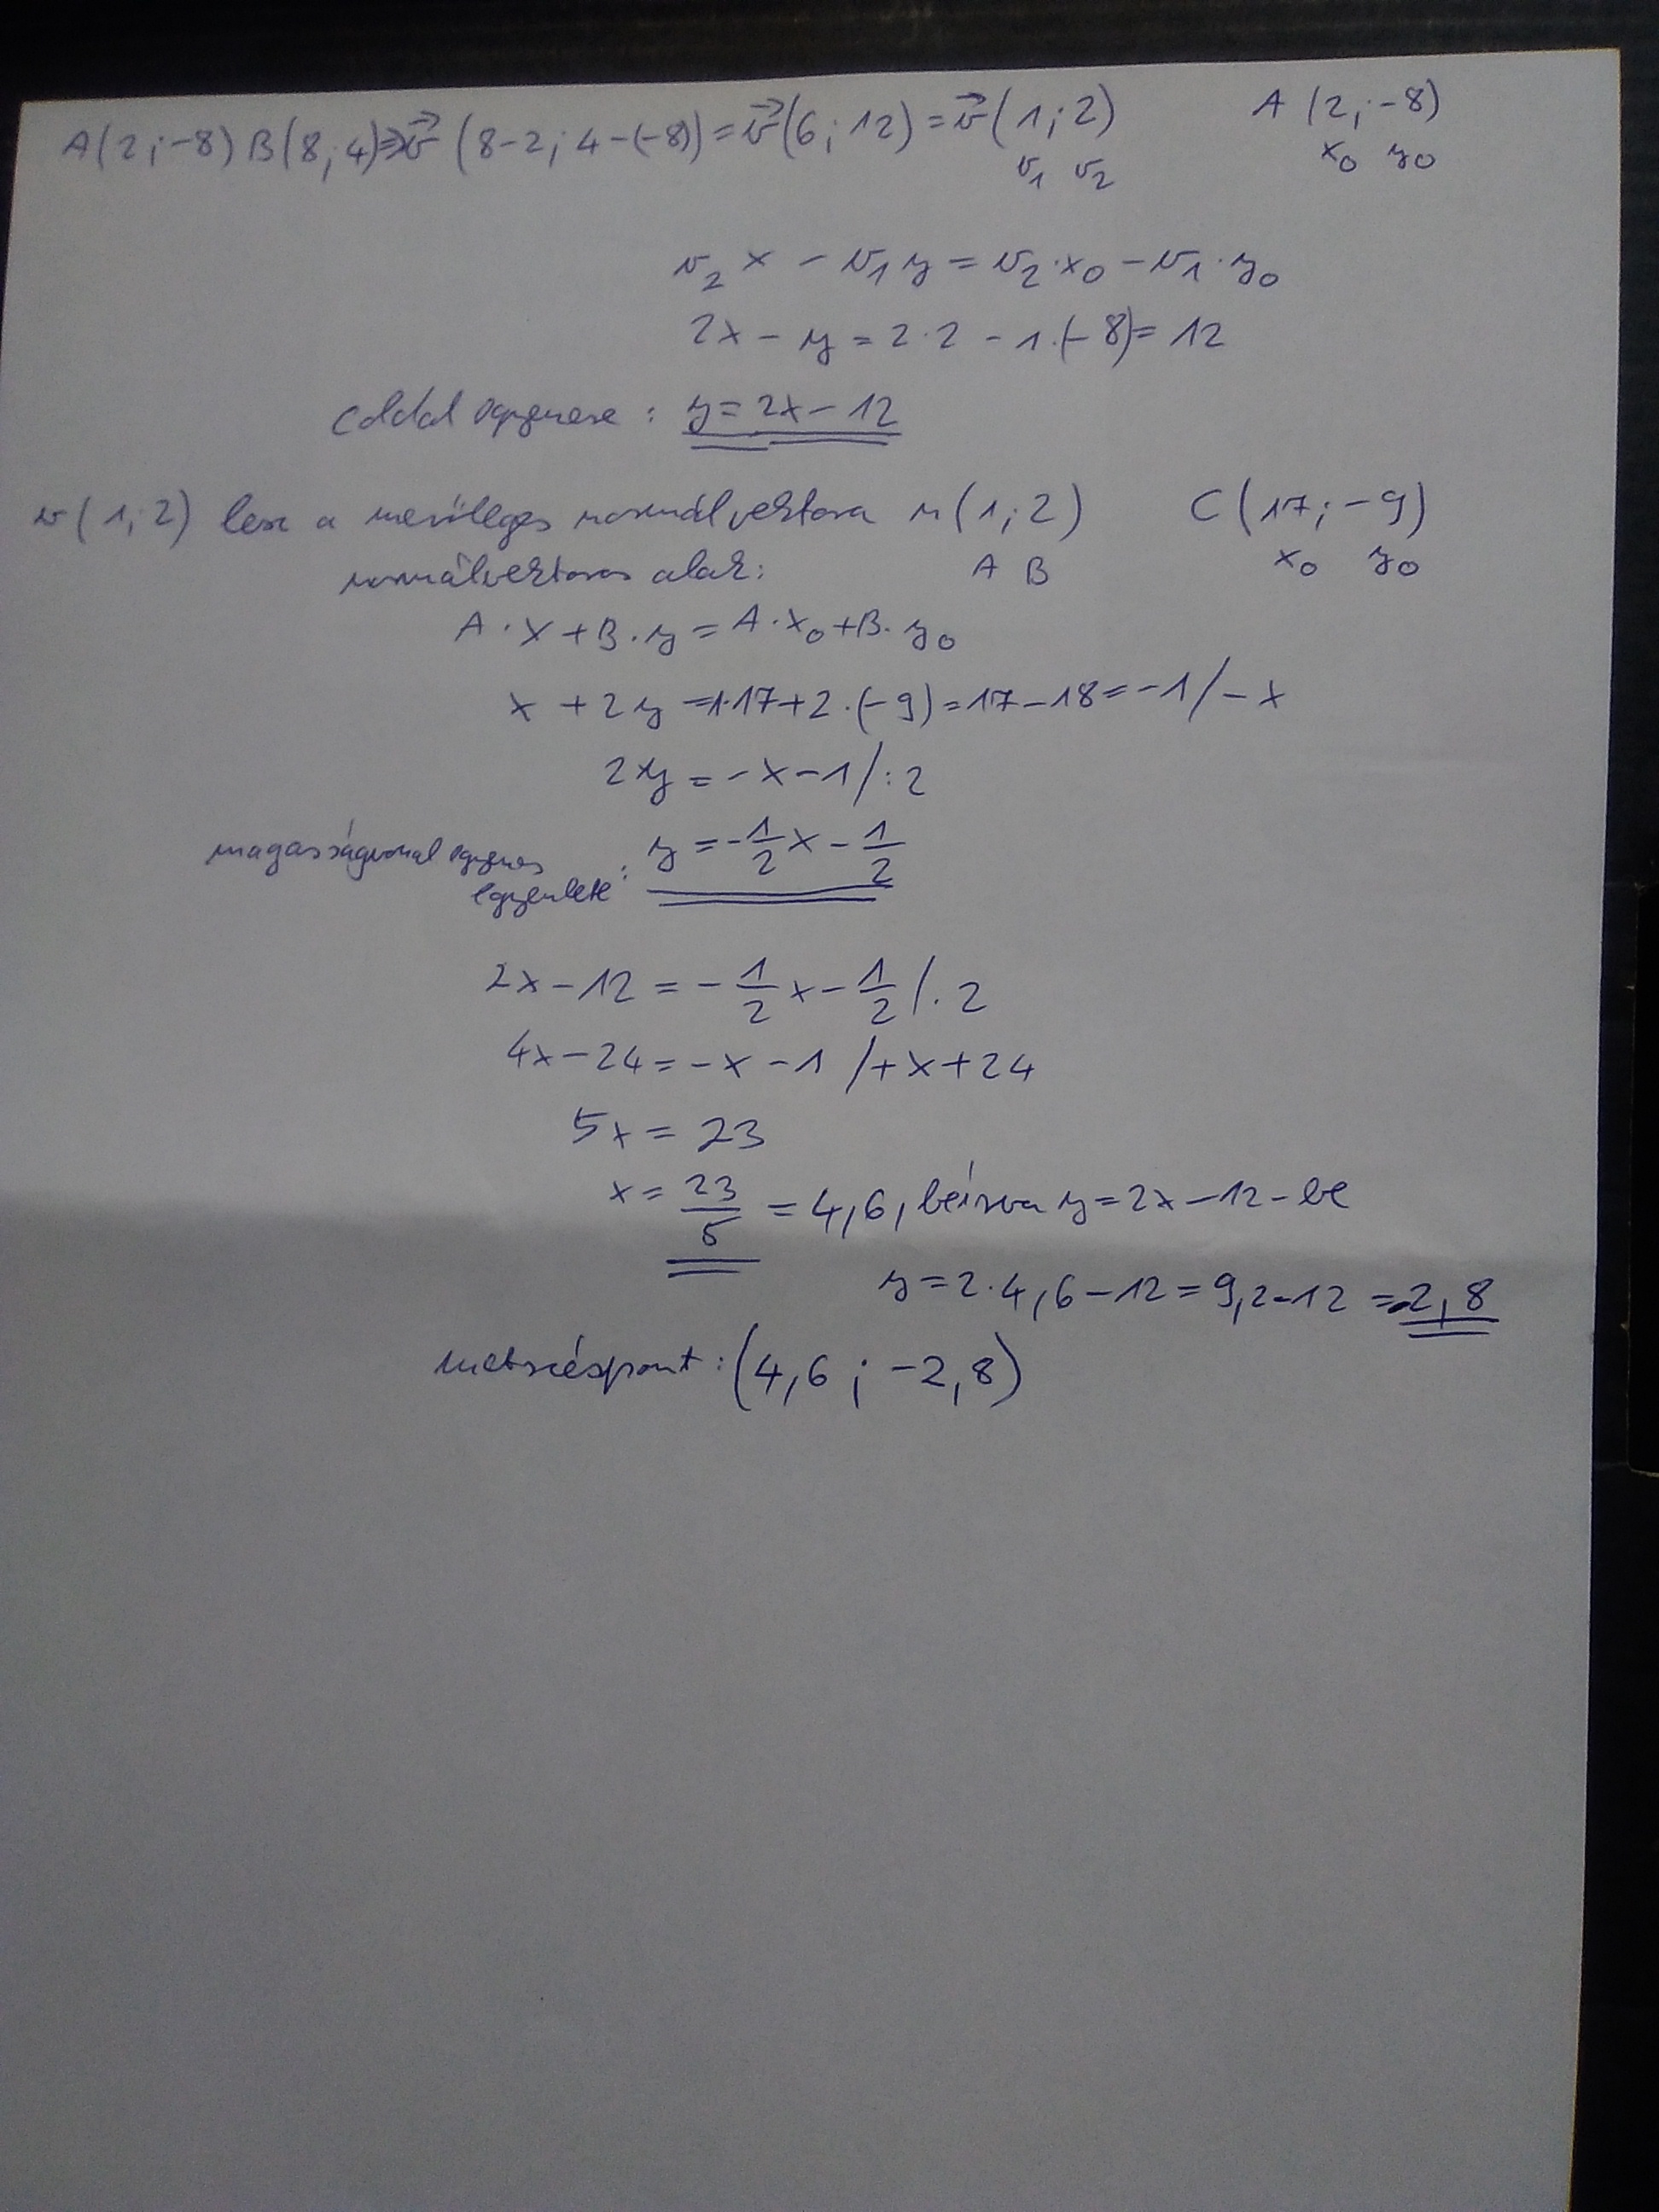 A(2;-8) B(8;4)⇒v⃗ (8-2; 4-(-8))=v⃗(6;12)=v⃗(1;2) A (2;-8)
v₁ v₂ x₀ y₀
v₂ x - v₁ y = v₂·x₀ - v₁·y₀
2x - y = 2·2 - 1·(-8)= 12
c oldal egyenese : y=2x-12
v(1;2) lesz a merőleges normálvektora n(1;2) C(17;-9)
normálvektoros alak: A B x₀ y₀
A·x+B·y=A·x₀+B·y₀
x+2y=1·17+2·(-9)=17-18=-1/-x
2y=-x-1/:2
magasságvonal egyenes : y=-1/2x-1/2
egyenlete
2x-12=-1/2x-1/2/·2
4x-24=-x-1 /+x+24
5x=23
x=23/5=4,6, beírva y=2x-12-be
y=2·4,6-12=9,2-12=-2,8
metszéspont:(4,6;-2,8)